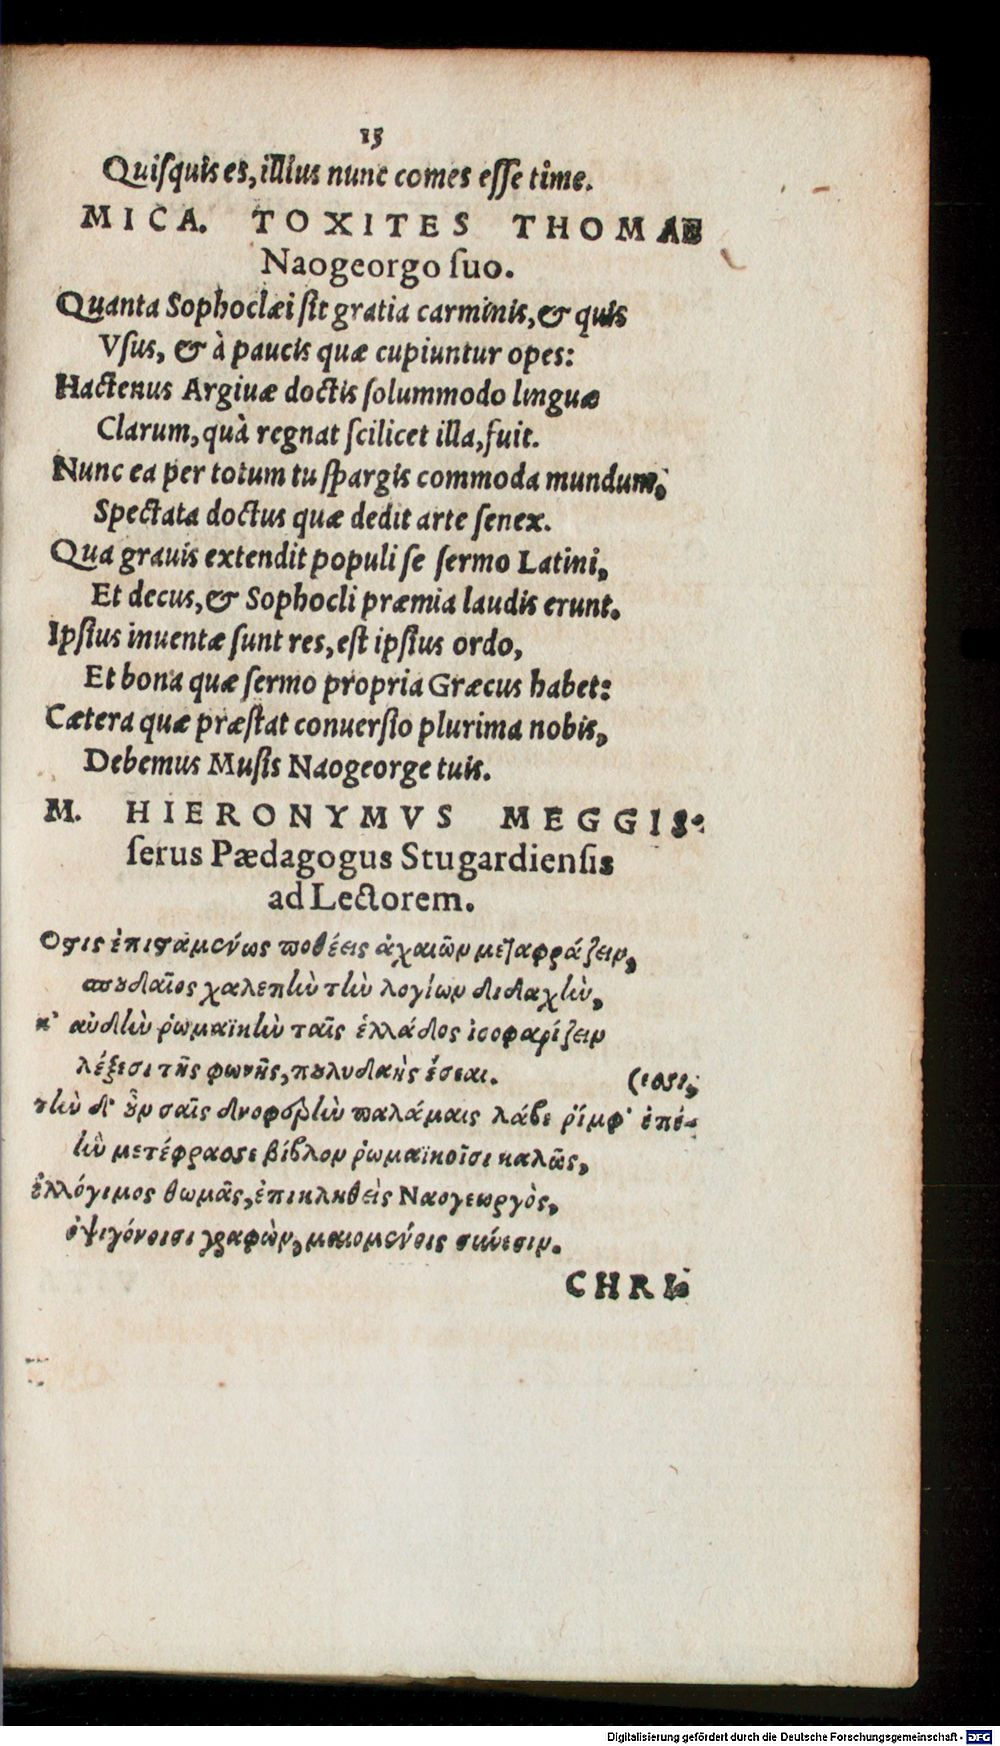 15
Quiſquis es, illius nunc comes eſſe time.
MICA. TOXITES THOMAE
Naogeorgo ſuo.
Quanta Sophoclæi ſit gratia carminis, & quis
Vſus, & à paucis quæ cupiuntur opes:
Hactenus Argiuæ doctis ſolummodo linguæ
Clarum, quà regnat ſcilicet illa, fuit.
Nunc ea per totum tu ſpargis commoda mundum,
Spectata doctus quæ dedit arte ſenex.
Qua grauis extendit populi ſe ſermo Latini,
Et decus, & Sophocli præmia laudis erunt.
Ipſius inuentæ ſunt res, eſt ipſius ordo,
Et bona quæ ſermo propria Græcus habet:
Cætera quæ præſtat conuerſio plurima nobis,
Debemus Muſis Naogeorge tuis.
M. HIERONYMVS MEGGIS-
ſerus Pædagogus Stugardienſis
ad Lectorem.
Οστις ἐπισταμένως ποθέεις ἀχαιῶν μεταφράζειν,
σπουδαῖος χαλεπὴν τὴν λογίων διδαχὴν,
κ' αὐδὴν ῥωμαϊκὴν ταῖς ἑλλάδος ἰσοφαρίζειν
λέξεσι τῆς φωνῆς, πουλυδαὴς ἔσεαι.
(ιοσι,
τὴν δ' οὖν σαῖς παλάμαις λάβε ῥίμφ' ἐπέ-
ἣν μετέφρασσε βίβλον ῥωμαϊκοῖσι καλῶς,
ἐλλόγιμος θωμᾶς, ἐπικληθεὶς Ναογεωργὸς,
ὀψιγόνοισι γραφὼν, μαιομένοις σύνεσιν.
CHRI-
Digitalisierung gefördert durch die Deutsche Forschungsgemeinschaft - DFG